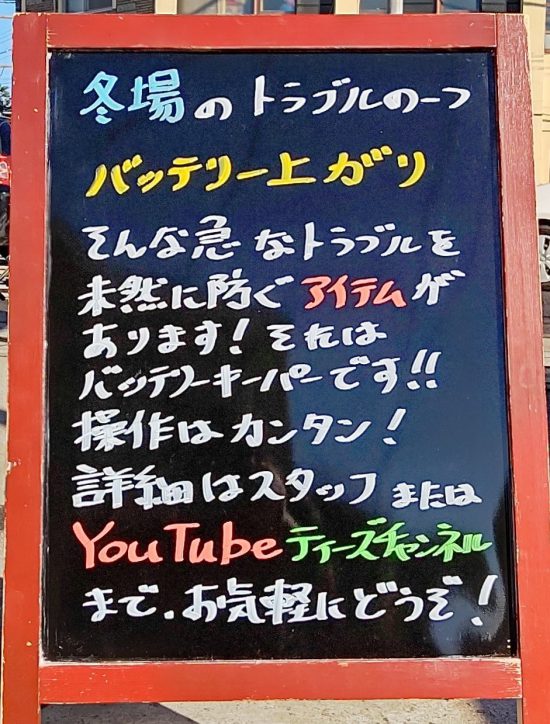 冬場のトラブルの一つ
バッテリー上がり
そんな急なトラブルを
未然に防ぐアイテムが
あります！それは
バッテリーキーパーです!!
操作はカンタン！
詳細はスタッフまたは
YouTubeティーズチャンネル
まで、お気軽にどうぞ！